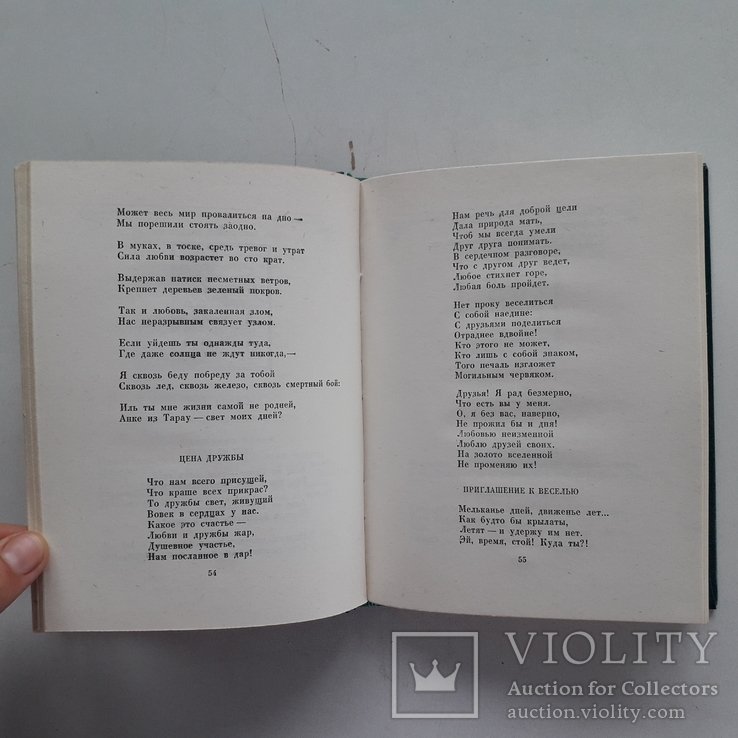 Может весь мир провалиться на дно —
Мы порешили стоять заодно.
В муках, в тоске, средь тревог и утрат
Сила любви возрастет во сто крат.
Выдержав натиск несметных ветров,
Крепнет деревьев зеленый покров.
Так и любовь, закаленная злом,
Нас неразрывным связует узлом.
Если уйдешь ты однажды туда,
Где даже солнца не ждут никогда,—
Я сквозь беду побреду за тобой
Сквозь лед, сквозь железо, сквозь смертный бой:
Иль ты мне жизни самой не родней,
Анке из Тарау — свет моих дней?
ЦЕНА ДРУЖБЫ
Что нам всего присущей,
Что краше всех прикрас?
То дружбы свет, живущий
Вовек в сердцах у нас.
Какое это счастье —
Любви и дружбы жар,
Душевное участье,
Нам посланное в дар!
54
Нам речь для доброй цели
Дала природа мать,
Чтоб мы всегда умели
Друг друга понимать.
В сердечном разговоре,
Что с другом друг ведет,
Любое стихнет горе,
Любая боль пройдет.
Нет проку веселиться
С собой наедине:
С друзьями поделиться
Отраднее вдвойне!
Кто этого не может,
Кто лишь с собой знаком,
Того печаль изгложет
Могильным червяком.
Друзья! Я рад безмерно,
Что есть вы у меня.
О, я без вас, наверно,
Не прожил бы и дня!
Любовью неизменной
Люблю друзей своих.
На золото вселенной
Не променяю их!
ПРИГЛАШЕНИЕ К ВЕСЕЛЬЮ
Мельканье дней, движенье лет...
Как будто бы крылаты,
Летят — и удержу им нет.
Эй, время, стой! Куда ты?!
55
VIOLITY
Auction for Collectors
auction.violity.com